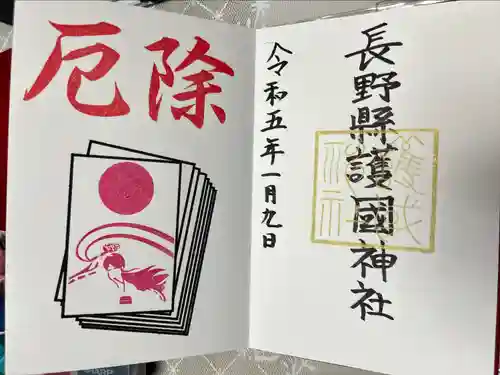 長野縣護國神社
令和五年一月九日
厄除